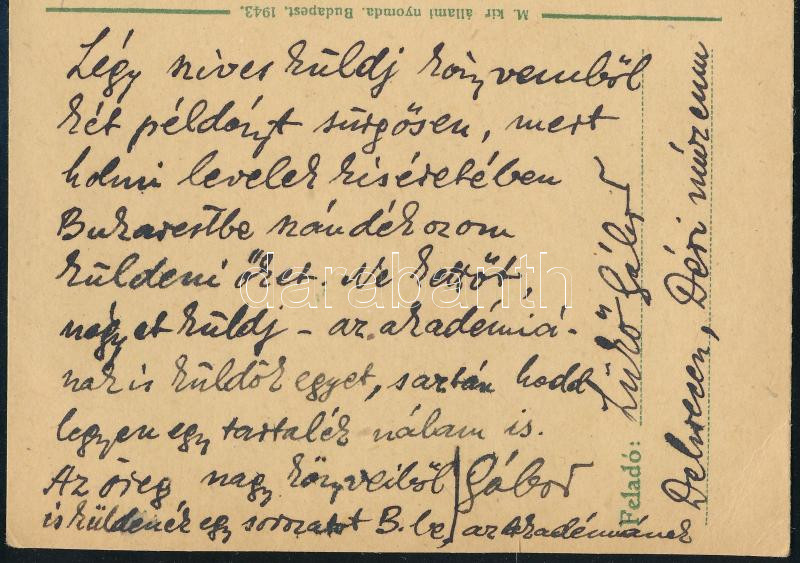 M. kir. állami nyomda. Budapest, 1943.
Légy szíves küldj könyvemből
két példányt sürgősen, mert
holmi levelek kiséretében
Bukarestbe szándékozom
küldeni őket. Ne kettőt,
négyet küldj – az akadémiá-
nak is küldök egyet, aztán hadd
legyen egy tartalék nálam is.
Az öreg nagy könyveiből
is küldenék egy sorozatot B.be, az Akadémiának
Gábor
Feladó: Lükő Gábor
Debrecen, Déri múzeum
darabanth